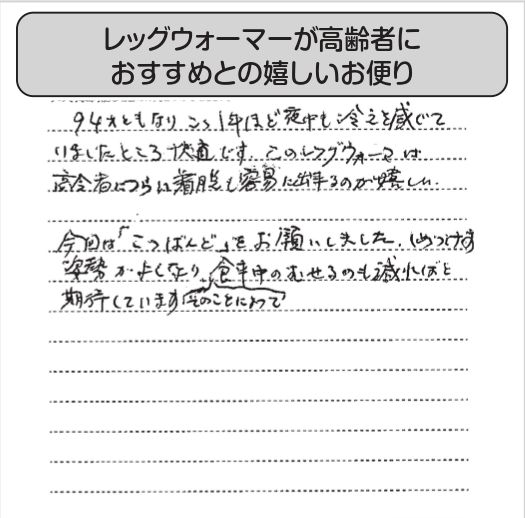 レッグウォーマーが高齢者に
おすすめとの嬉しいお便り
94才ともなり、ここ1年ほど夜中も冷えを感じて
いましたところ快適です。このレッグウォーマは
高令者につらい着脱も容易に出来るのが嬉しい。
今回は「こつばんど」をお願いしました。
姿勢がよくなり、食事中のむせるのも減ればと
期待しています(そのことによって